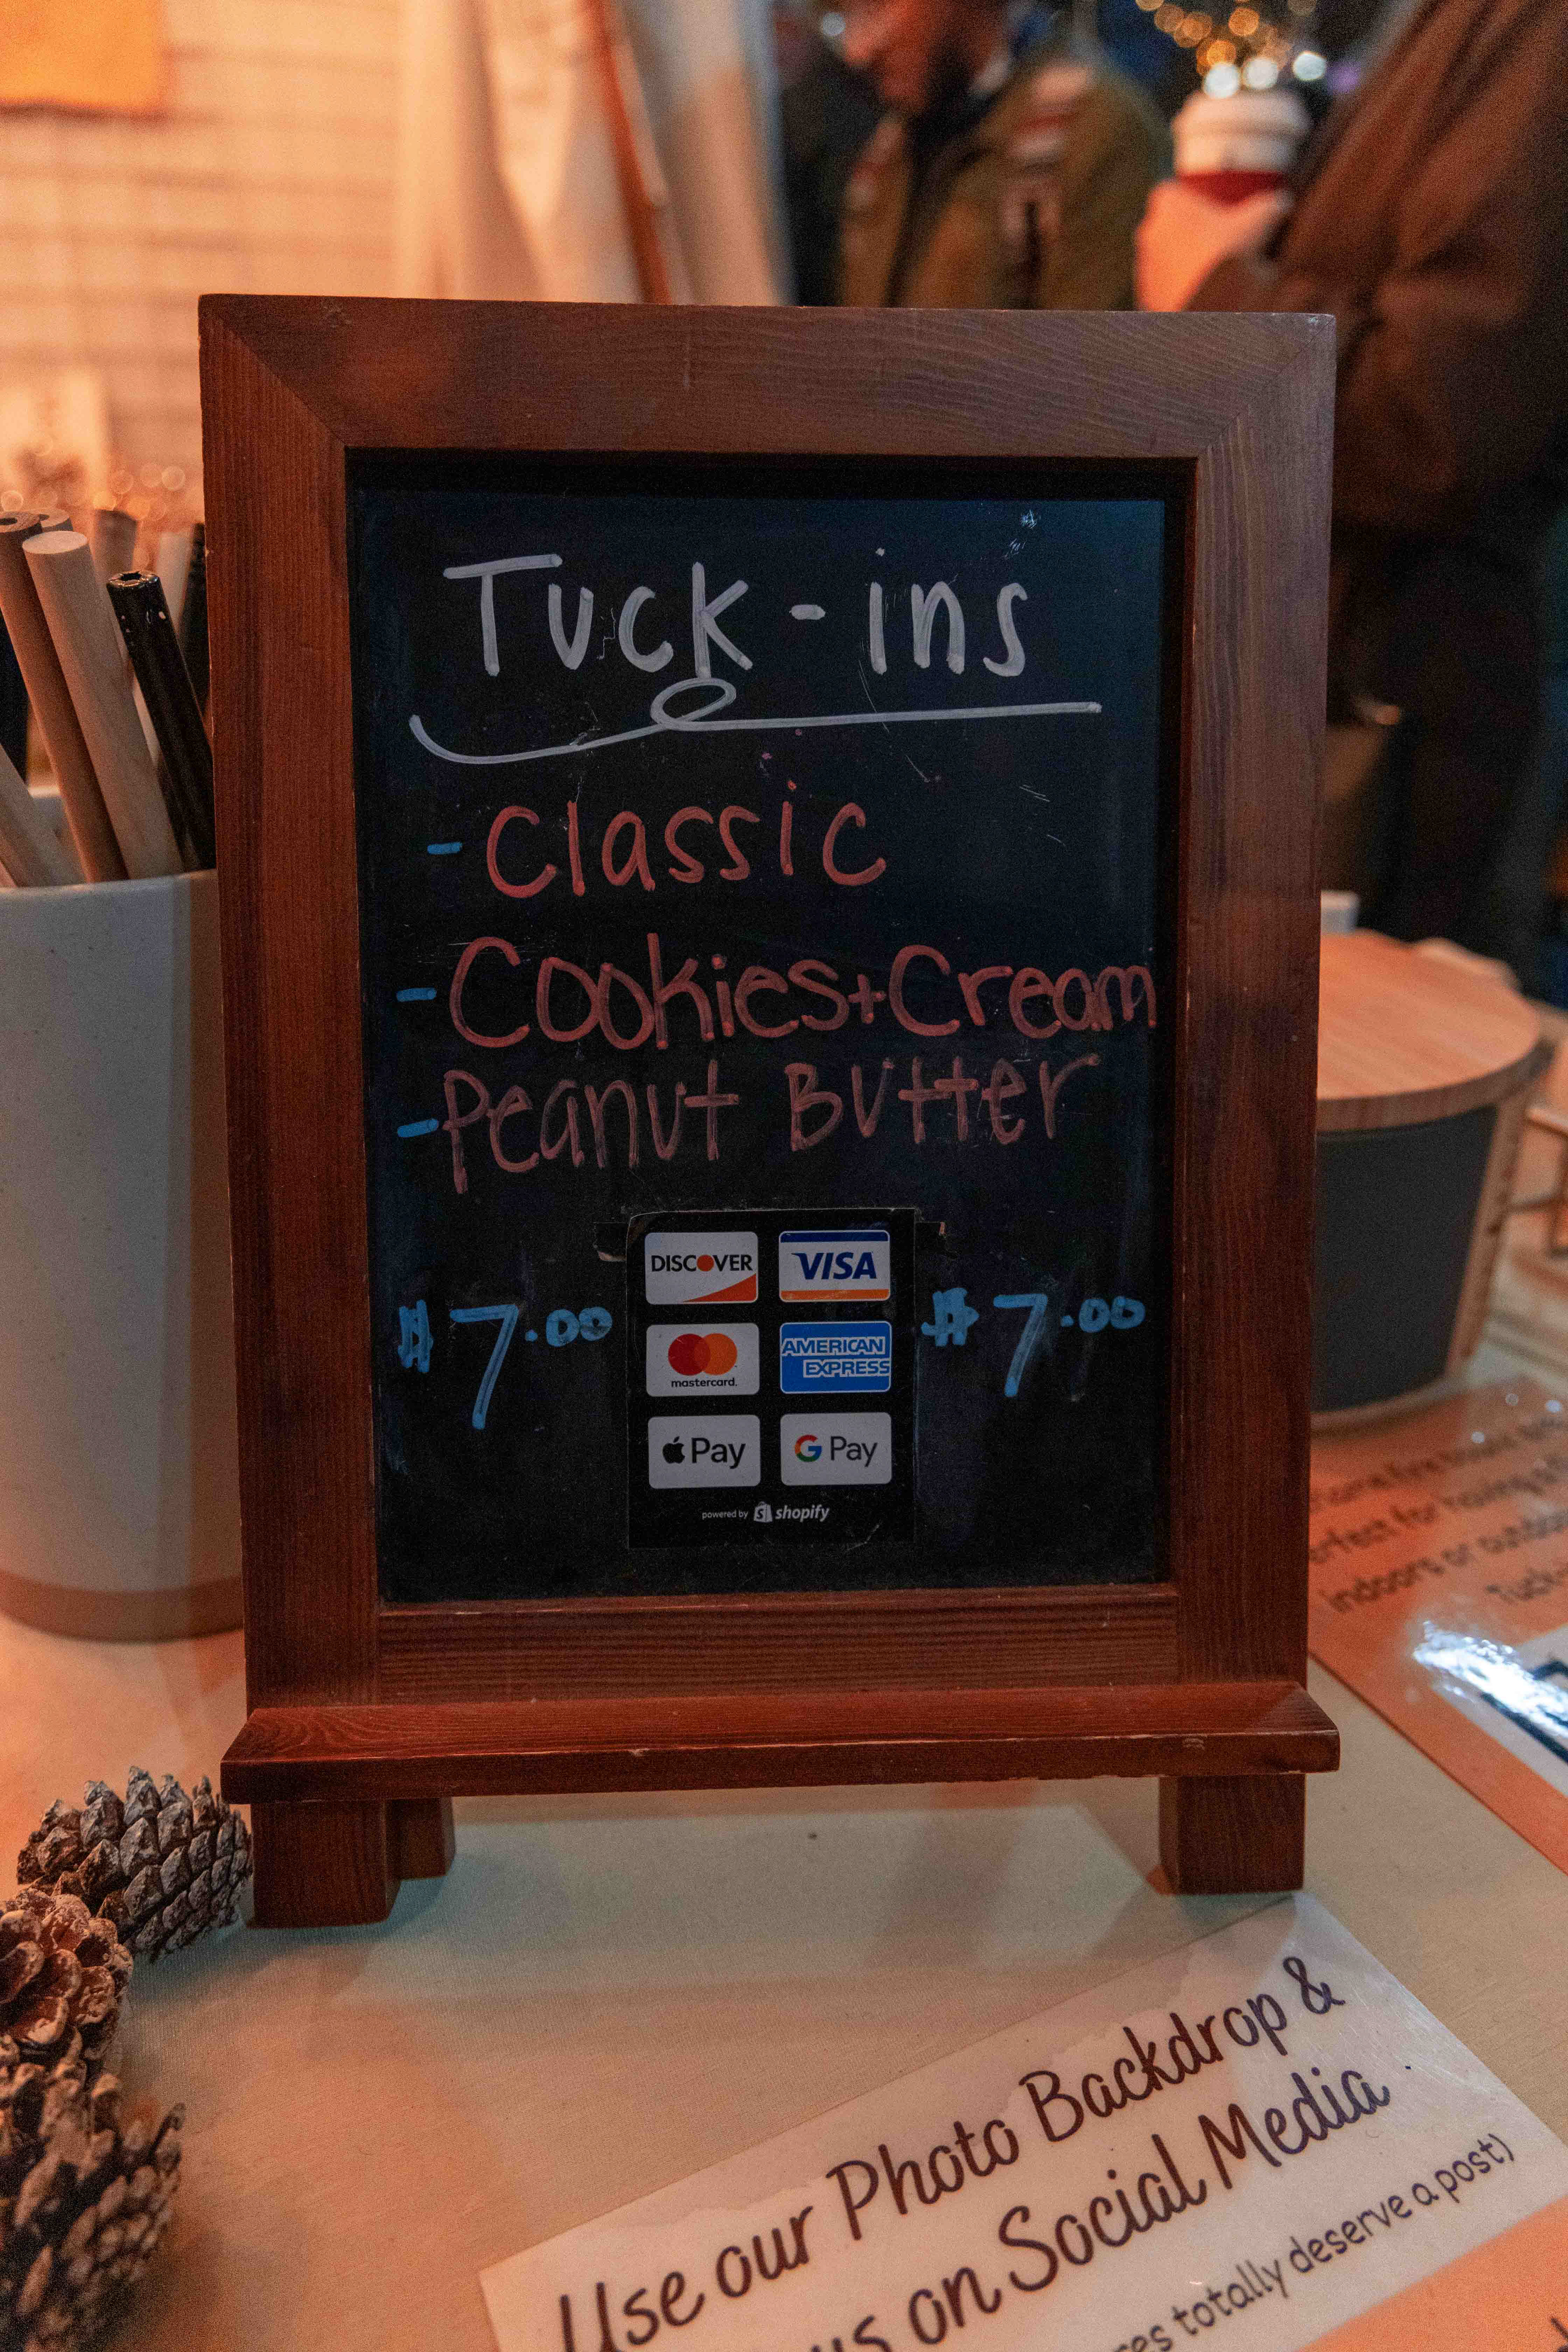 Tuck-ins
- Classic
- Cookies+Cream
- Peanut Butter
DISCOVER VISA
$7.00 $7.00
mastercard. AMERICAN EXPRESS
Pay G Pay
powered by shopify
perfect for having
indoors or
Use our Photo Backdrop &
us on Social Media
totally deserve a post)